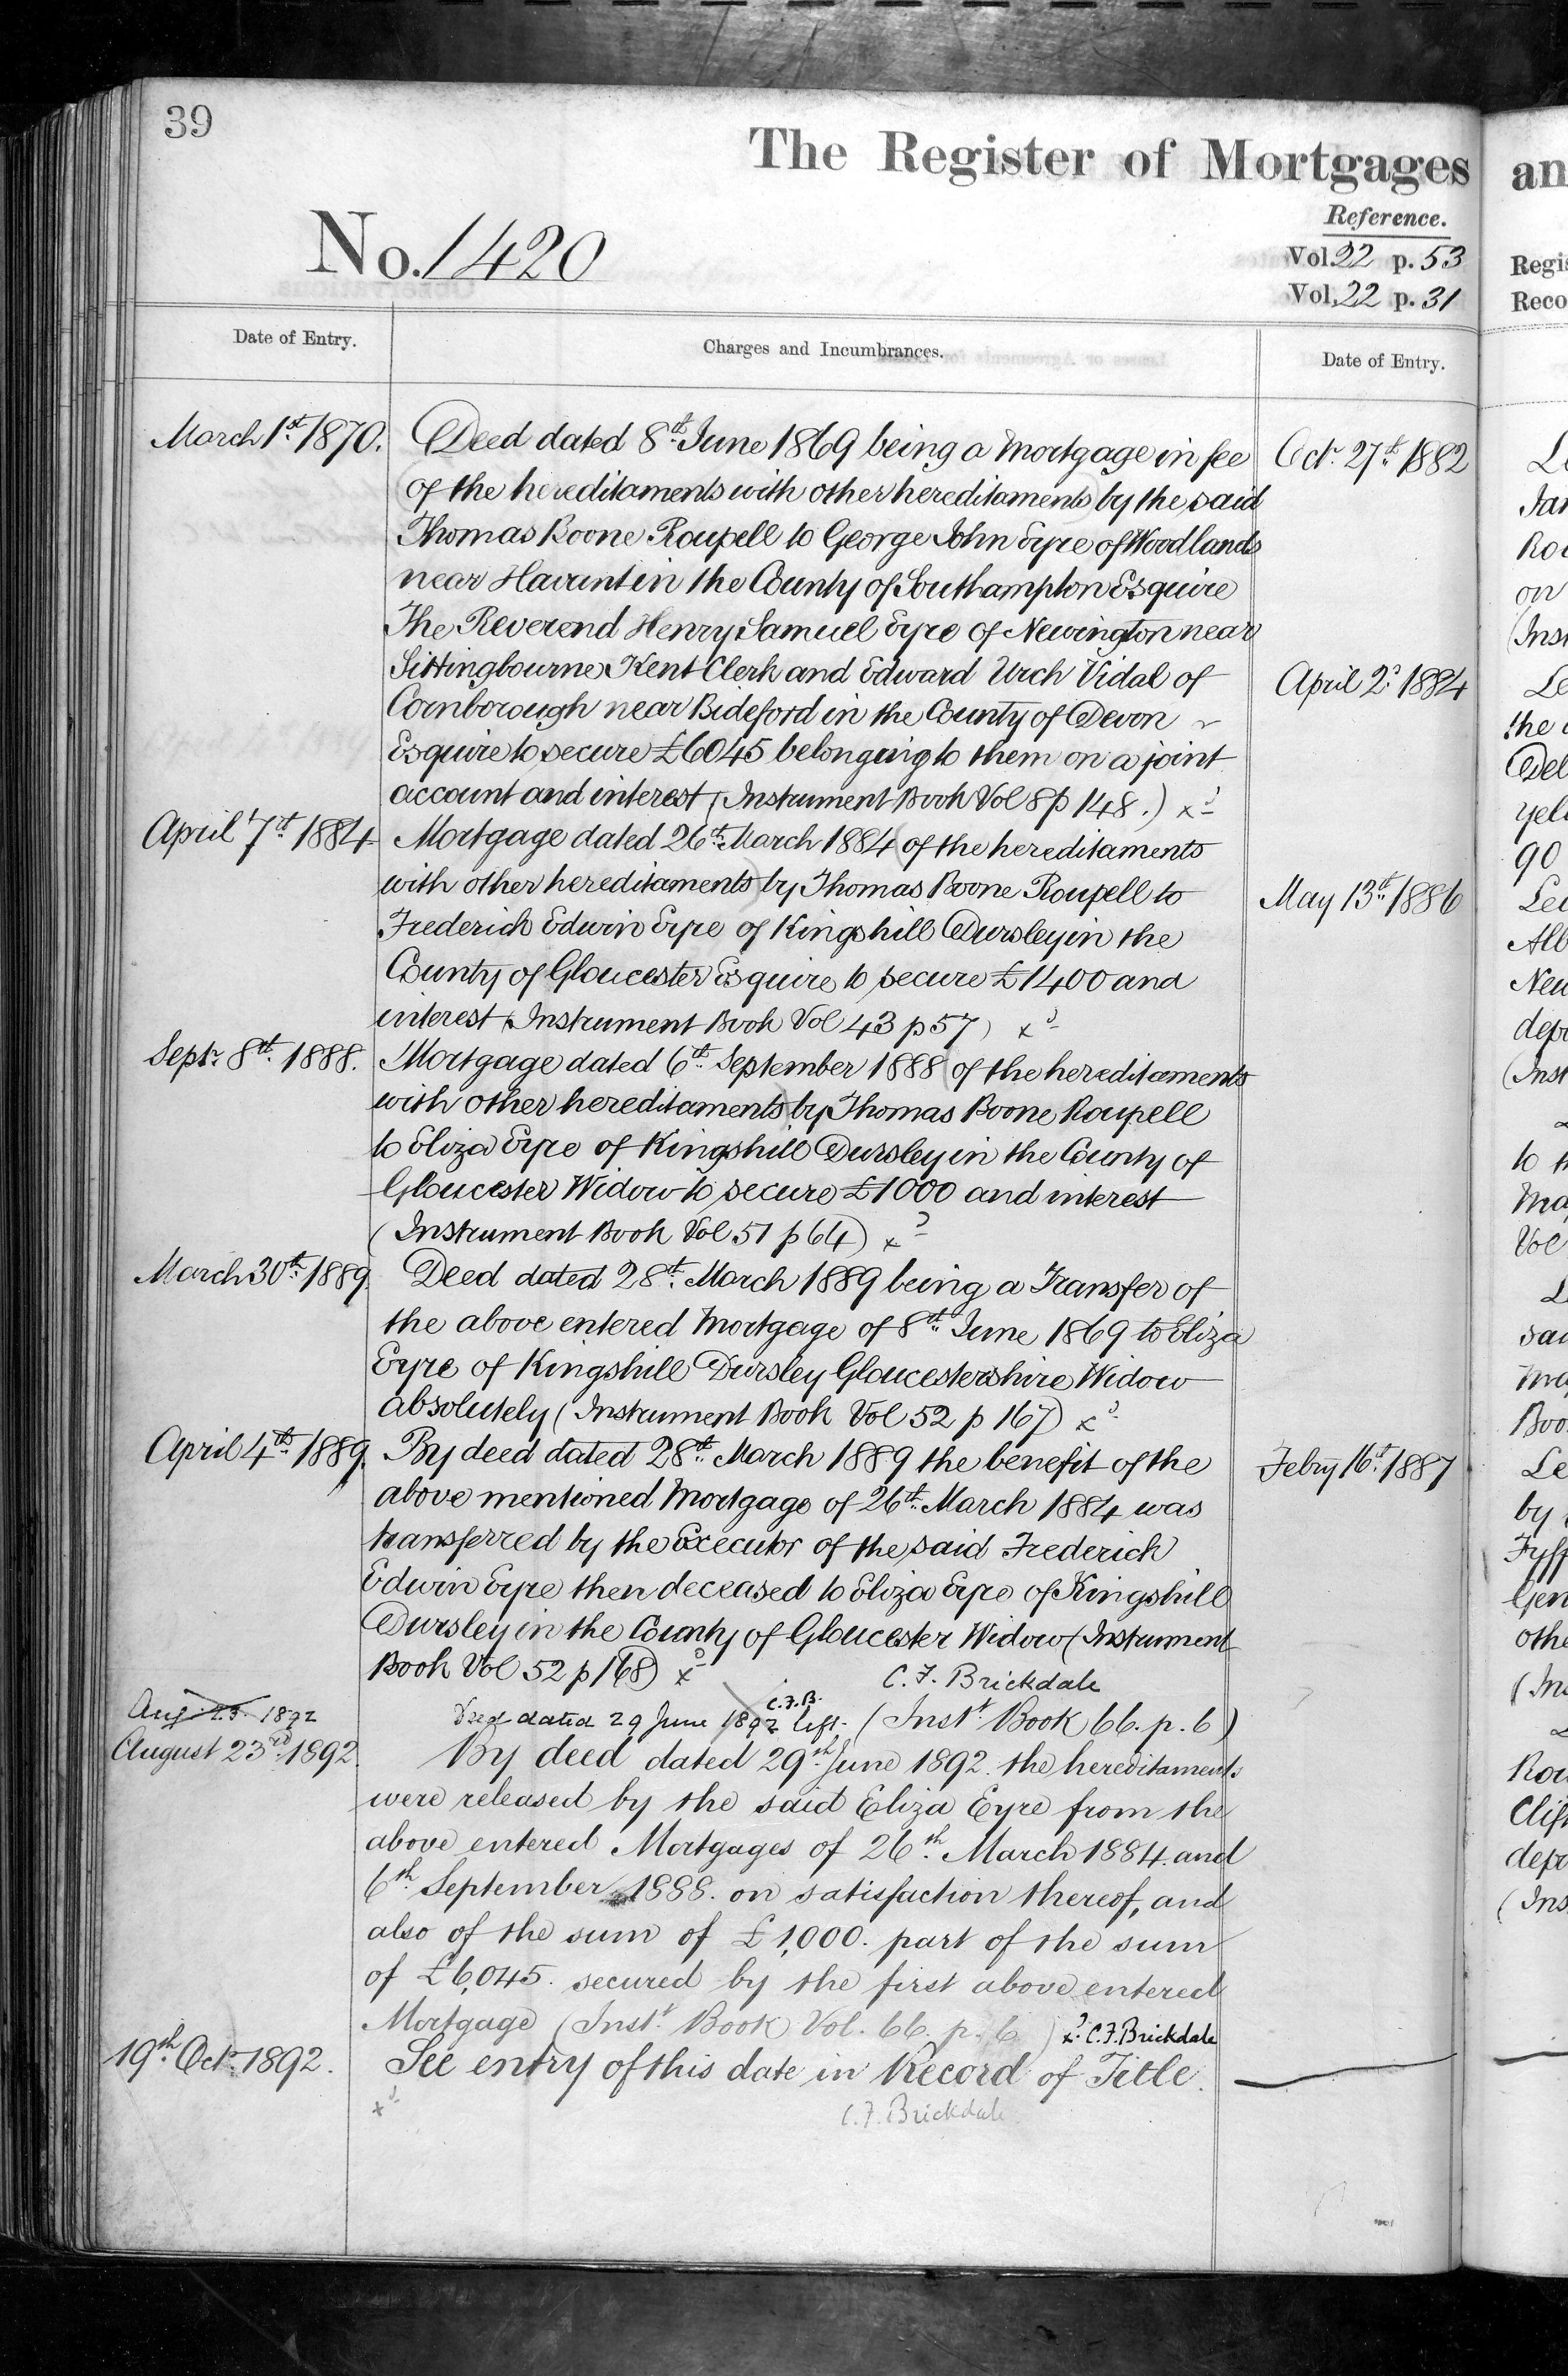 39
The Register of Mortgages
an
Reference.
No. 1420
Vol. 22 p. 53
Vol. 22 p. 31
Regis
Reco
Date of Entry.
Charges and Incumbrances.
Date of Entry.
March 1st 1870.
Deed dated 8th June 1869 being a Mortgage in fee
of the hereditaments with other hereditaments by the said
Thomas Boone Roupell to George John Eyre of Woodlands
near Havant in the County of Southampton Esquire
The Reverend Henry Samuel Eyre of Newington near
Sittingbourne Kent Clerk and Edward Urch Vidal of
Cornborough near Bideford in the County of Devon
Esquire to secure £6045 belonging to them on a joint
account and interest (Instrument Book Vol 8 p 148.) x
April 7th 1884
Mortgage dated 26th March 1884 (of the hereditaments
with other hereditaments) by Thomas Boone Roupell to
Frederick Edwin Eyre of Kingshill Dursley in the
County of Gloucester Esquire to secure £1400 and
interest (Instrument Book Vol 43 p 57) x
Sept. 8th 1888.
Mortgage dated 6th September 1888 (of the hereditaments
with other hereditaments) by Thomas Boone Roupell
to Eliza Eyre of Kingshill Dursley in the County of
Gloucester Widow to secure £1000 and interest
(Instrument Book Vol 51 p 64) x
March 30th 1889.
Deed dated 28th March 1889 being a Transfer of
the above entered Mortgage of 8th June 1869 to Eliza
Eyre of Kingshill Dursley Gloucestershire Widow
absolutely (Instrument Book Vol 52 p 167) x
April 4th 1889.
By deed dated 28th March 1889 the benefit of the
above mentioned Mortgage of 26th March 1884 was
transferred by the Executor of the said Frederick
Edwin Eyre then deceased to Eliza Eyre of Kingshill
Dursley in the County of Gloucester Widow (Instrument
Book Vol 52 p 168) x
C. F. Brickdale
C.F.B.
Aug 23. 1892
Deed dated 29 June 1892 left. (Instt. Book 66. p. 6)
August 23rd 1892.
By deed dated 29th June 1892. the hereditaments
were released by the said Eliza Eyre from the
above entered Mortgages of 26th March 1884. and
6th September 1888. on satisfaction thereof, and
also of the sum of £1,000. part of the sum
of £6,045. secured by the first above entered
Mortgage (Instt. Book Vol. 66. p. 6) x C.F. Brickdale
19th Oct. 1892.
See entry of this date in Record of Title.
x
C. F. Brickdale
Oct. 27th 1882
April 2d 1884
May 13th 1886
Feby 16th 1887
Le
Jan
Rou
on
(Inst
Le
the
Del
yel
90
Lea
Alb
New
depo
(Inst
to
Ma
Vol
L
sai
Ma
Boo
Le
by
Fyff
Gen
othe
(Ins
Rou
Clif
depo
(Ins